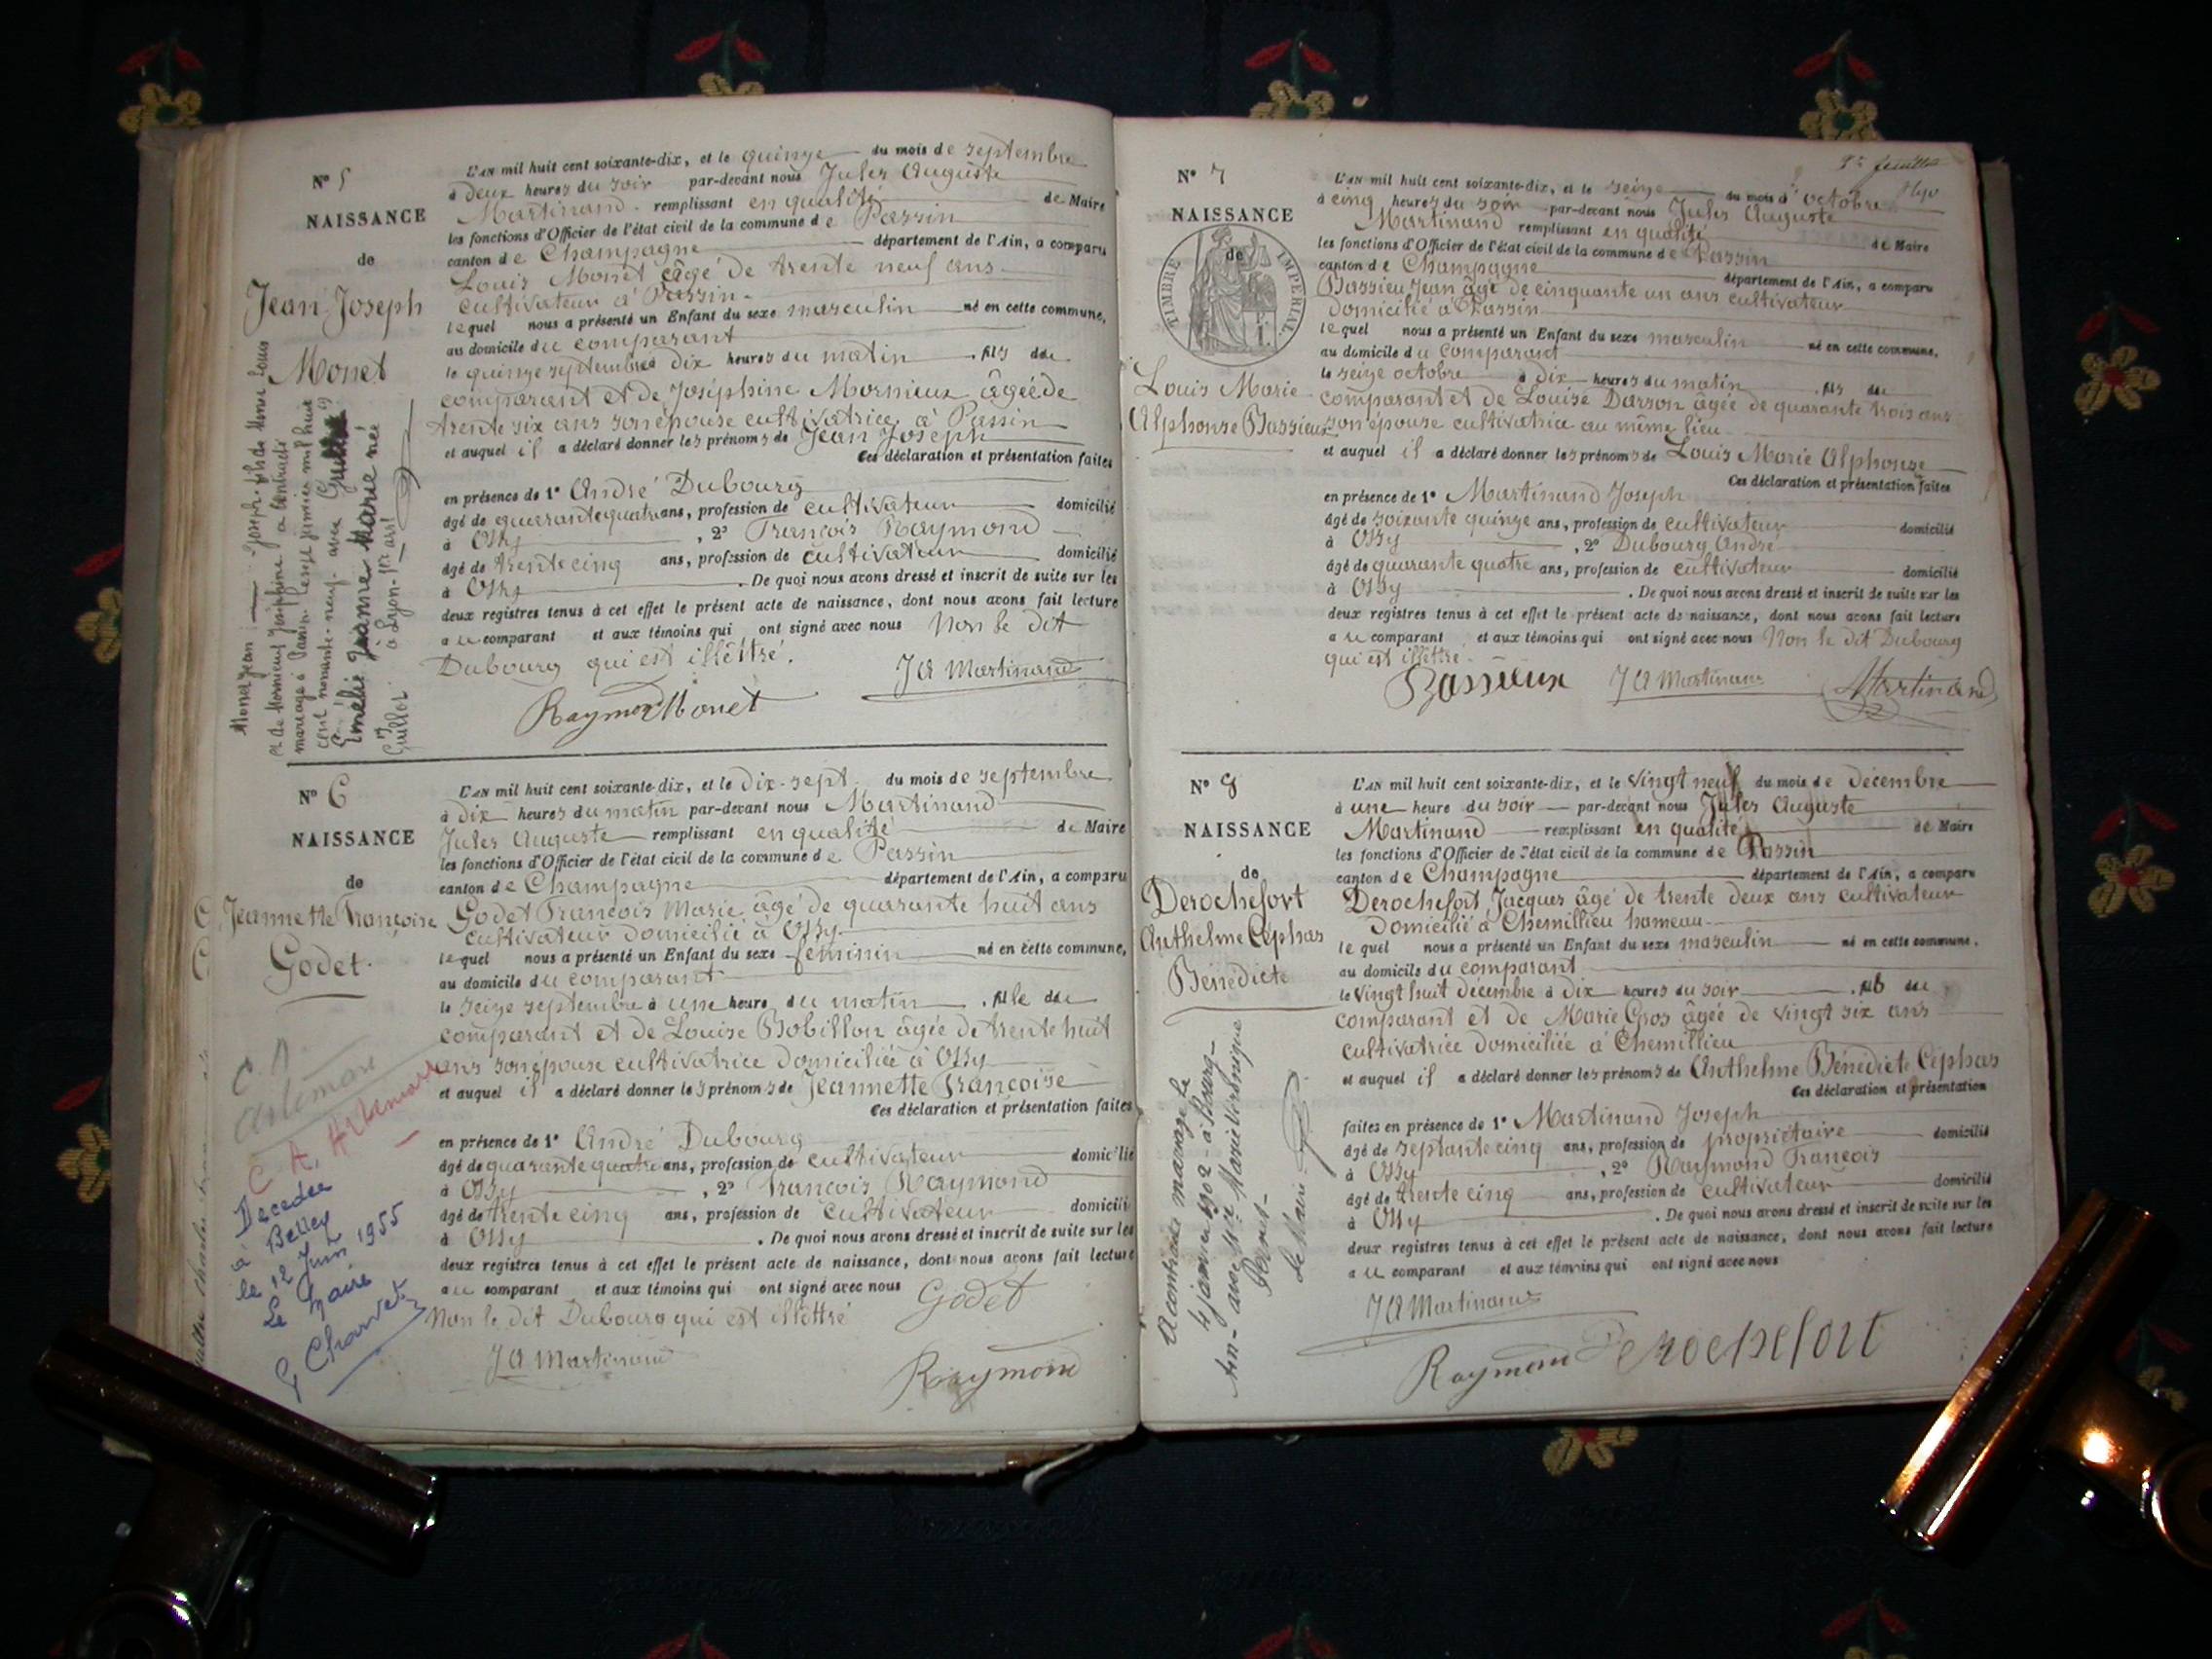 N° 5
NAISSANCE
de
Jean Joseph
Monet
L'AN mil huit cent soixante-dix, et le quinze du mois de septembre
à deux heures du soir par-devant nous Jules Auguste
Martinand remplissant en qualité de Maire
les fonctions d'Officier de l'état civil de la commune de Passin
canton de Champagne département de l'Ain, a comparu
Louis Monet âgé de trente neuf ans
cultivateur à Passin
lequel nous a présenté un Enfant du sexe masculin né en cette commune,
au domicile du comparant
le quinze septembre à dix heures du matin , fils du
comparant et de Joséphine Mornieux âgée de
trente six ans son épouse cultivatrice à Passin
et auquel il a déclaré donner les prénoms de Jean Joseph
Ces déclaration et présentation faites
en présence de 1° André Dubourg
âgé de quarante quatre ans, profession de cultivateur domicilié
à Ossy , 2° François Raymond
âgé de trente cinq ans, profession de cultivateur domicilié
à Ossy . De quoi nous avons dressé et inscrit de suite sur les
deux registres tenus à cet effet le présent acte de naissance, dont nous avons fait lecture
au comparant et aux témoins qui ont signé avec nous Non le dit
Dubourg qui est illettré.
JA Martinand
Raymond Monet
Monet Jean Joseph fils de Monet Louis
et de Mornieux Joséphine a contracté
mariage à Passin le sept janvier mil huit
cent nonante-neuf avec
Emélie Jeanne Marie née
à Lyon 1er arrt
Guillot
N° 6
NAISSANCE
de
Jeannette Françoise
Godet
L'AN mil huit cent soixante-dix, et le dix-sept du mois de septembre
à dix heures du matin par-devant nous Martinand
Jules Auguste remplissant en qualité de Maire
les fonctions d'Officier de l'état civil de la commune de Passin
canton de Champagne département de l'Ain, a comparu
Godet François Marie âgé de quarante huit ans
cultivateur domicilié à Ossy
lequel nous a présenté un Enfant du sexe féminin né en cette commune,
au domicile du comparant
le seize septembre à une heure du matin , fille du
comparant et de Louise Bobillon âgée de trente huit
ans son épouse cultivatrice domiciliée à Ossy
et auquel il a déclaré donner les prénoms de Jeannette Françoise
Ces déclaration et présentation faites
en présence de 1° André Dubourg
âgé de quarante quatre ans, profession de cultivateur domicilié
à Ossy , 2° François Raymond
âgé de trente cinq ans, profession de cultivateur domicilié
à Ossy . De quoi nous avons dressé et inscrit de suite sur les
deux registres tenus à cet effet le présent acte de naissance, dont nous avons fait lecture
au comparant et aux témoins qui ont signé avec nous Godet
Non le dit Dubourg qui est illettré
JA Martinand
Raymond
C.A.
Artemare
C. A. Artemare
Décédée
à Belley
le 12 Juin 1955
Le Maire
G Charvet
1er feuillet
N° 7
NAISSANCE
de
TIMBRE IMPERIAL
Louis Marie
Alphonse Bassieux
L'AN mil huit cent soixante-dix, et le seize du mois d'octobre
à cinq heures du soir par-devant nous Jules Auguste
Martinand remplissant en qualité de Maire
les fonctions d'Officier de l'état civil de la commune de Passin
canton de Champagne département de l'Ain, a comparu
Bassieu Jean âgé de cinquante un ans cultivateur
domicilié à Passin
lequel nous a présenté un Enfant du sexe masculin né en cette commune,
au domicile du comparant
le seize octobre à dix heures du matin , fils du
comparant et de Louise Darson âgée de quarante trois ans
son épouse cultivatrice au même lieu
et auquel il a déclaré donner les prénoms de Louis Marie Alphonse
Ces déclaration et présentation faites
en présence de 1° Martinand Joseph
âgé de soixante quinze ans, profession de cultivateur domicilié
à Ossy , 2° Dubourg André
âgé de quarante quatre ans, profession de cultivateur domicilié
à Ossy . De quoi nous avons dressé et inscrit de suite sur les
deux registres tenus à cet effet le présent acte de naissance, dont nous avons fait lecture
au comparant et aux témoins qui ont signé avec nous Non le dit Dubourg
qui est illettré.
Bassieux JA Martinand Martinand
N° 8
NAISSANCE
de
Derochefort
Anthelme Céphas
Bénédicte
L'AN mil huit cent soixante-dix, et le vingt neuf du mois de décembre
à une heure du soir par-devant nous Jules Auguste
Martinand remplissant en qualité de Maire
les fonctions d'Officier de l'état civil de la commune de Passin
canton de Champagne département de l'Ain, a comparu
Derochefort Jacques âgé de trente deux ans cultivateur
domicilié à Chemillieu hameau
le quel nous a présenté un Enfant du sexe masculin né en cette commune,
au domicile du comparant
le vingt huit décembre à dix heures du soir , fils du
comparant et de Marie Gros âgée de vingt six ans
cultivatrice domiciliée à Chemillieu
et auquel il a déclaré donner les prénoms de Anthelme Bénédicte Céphas
Ces déclaration et présentation
faites en présence de 1° Martinand Joseph
âgé de septante cinq ans, profession de propriétaire domicilié
à Ossy , 2° Raymond François
âgé de trente cinq ans, profession de cultivateur domicilié
à Ossy . De quoi nous avons dressé et inscrit de suite sur les
deux registres tenus à cet effet le présent acte de naissance, dont nous avons fait lecture
au comparant et aux témoins qui ont signé avec nous
JA Martinand
Raymond Derochefort
A contracté mariage le
4 janvier 1902 à Bourg-
Ain- avec Marie Véronique
Le Maire